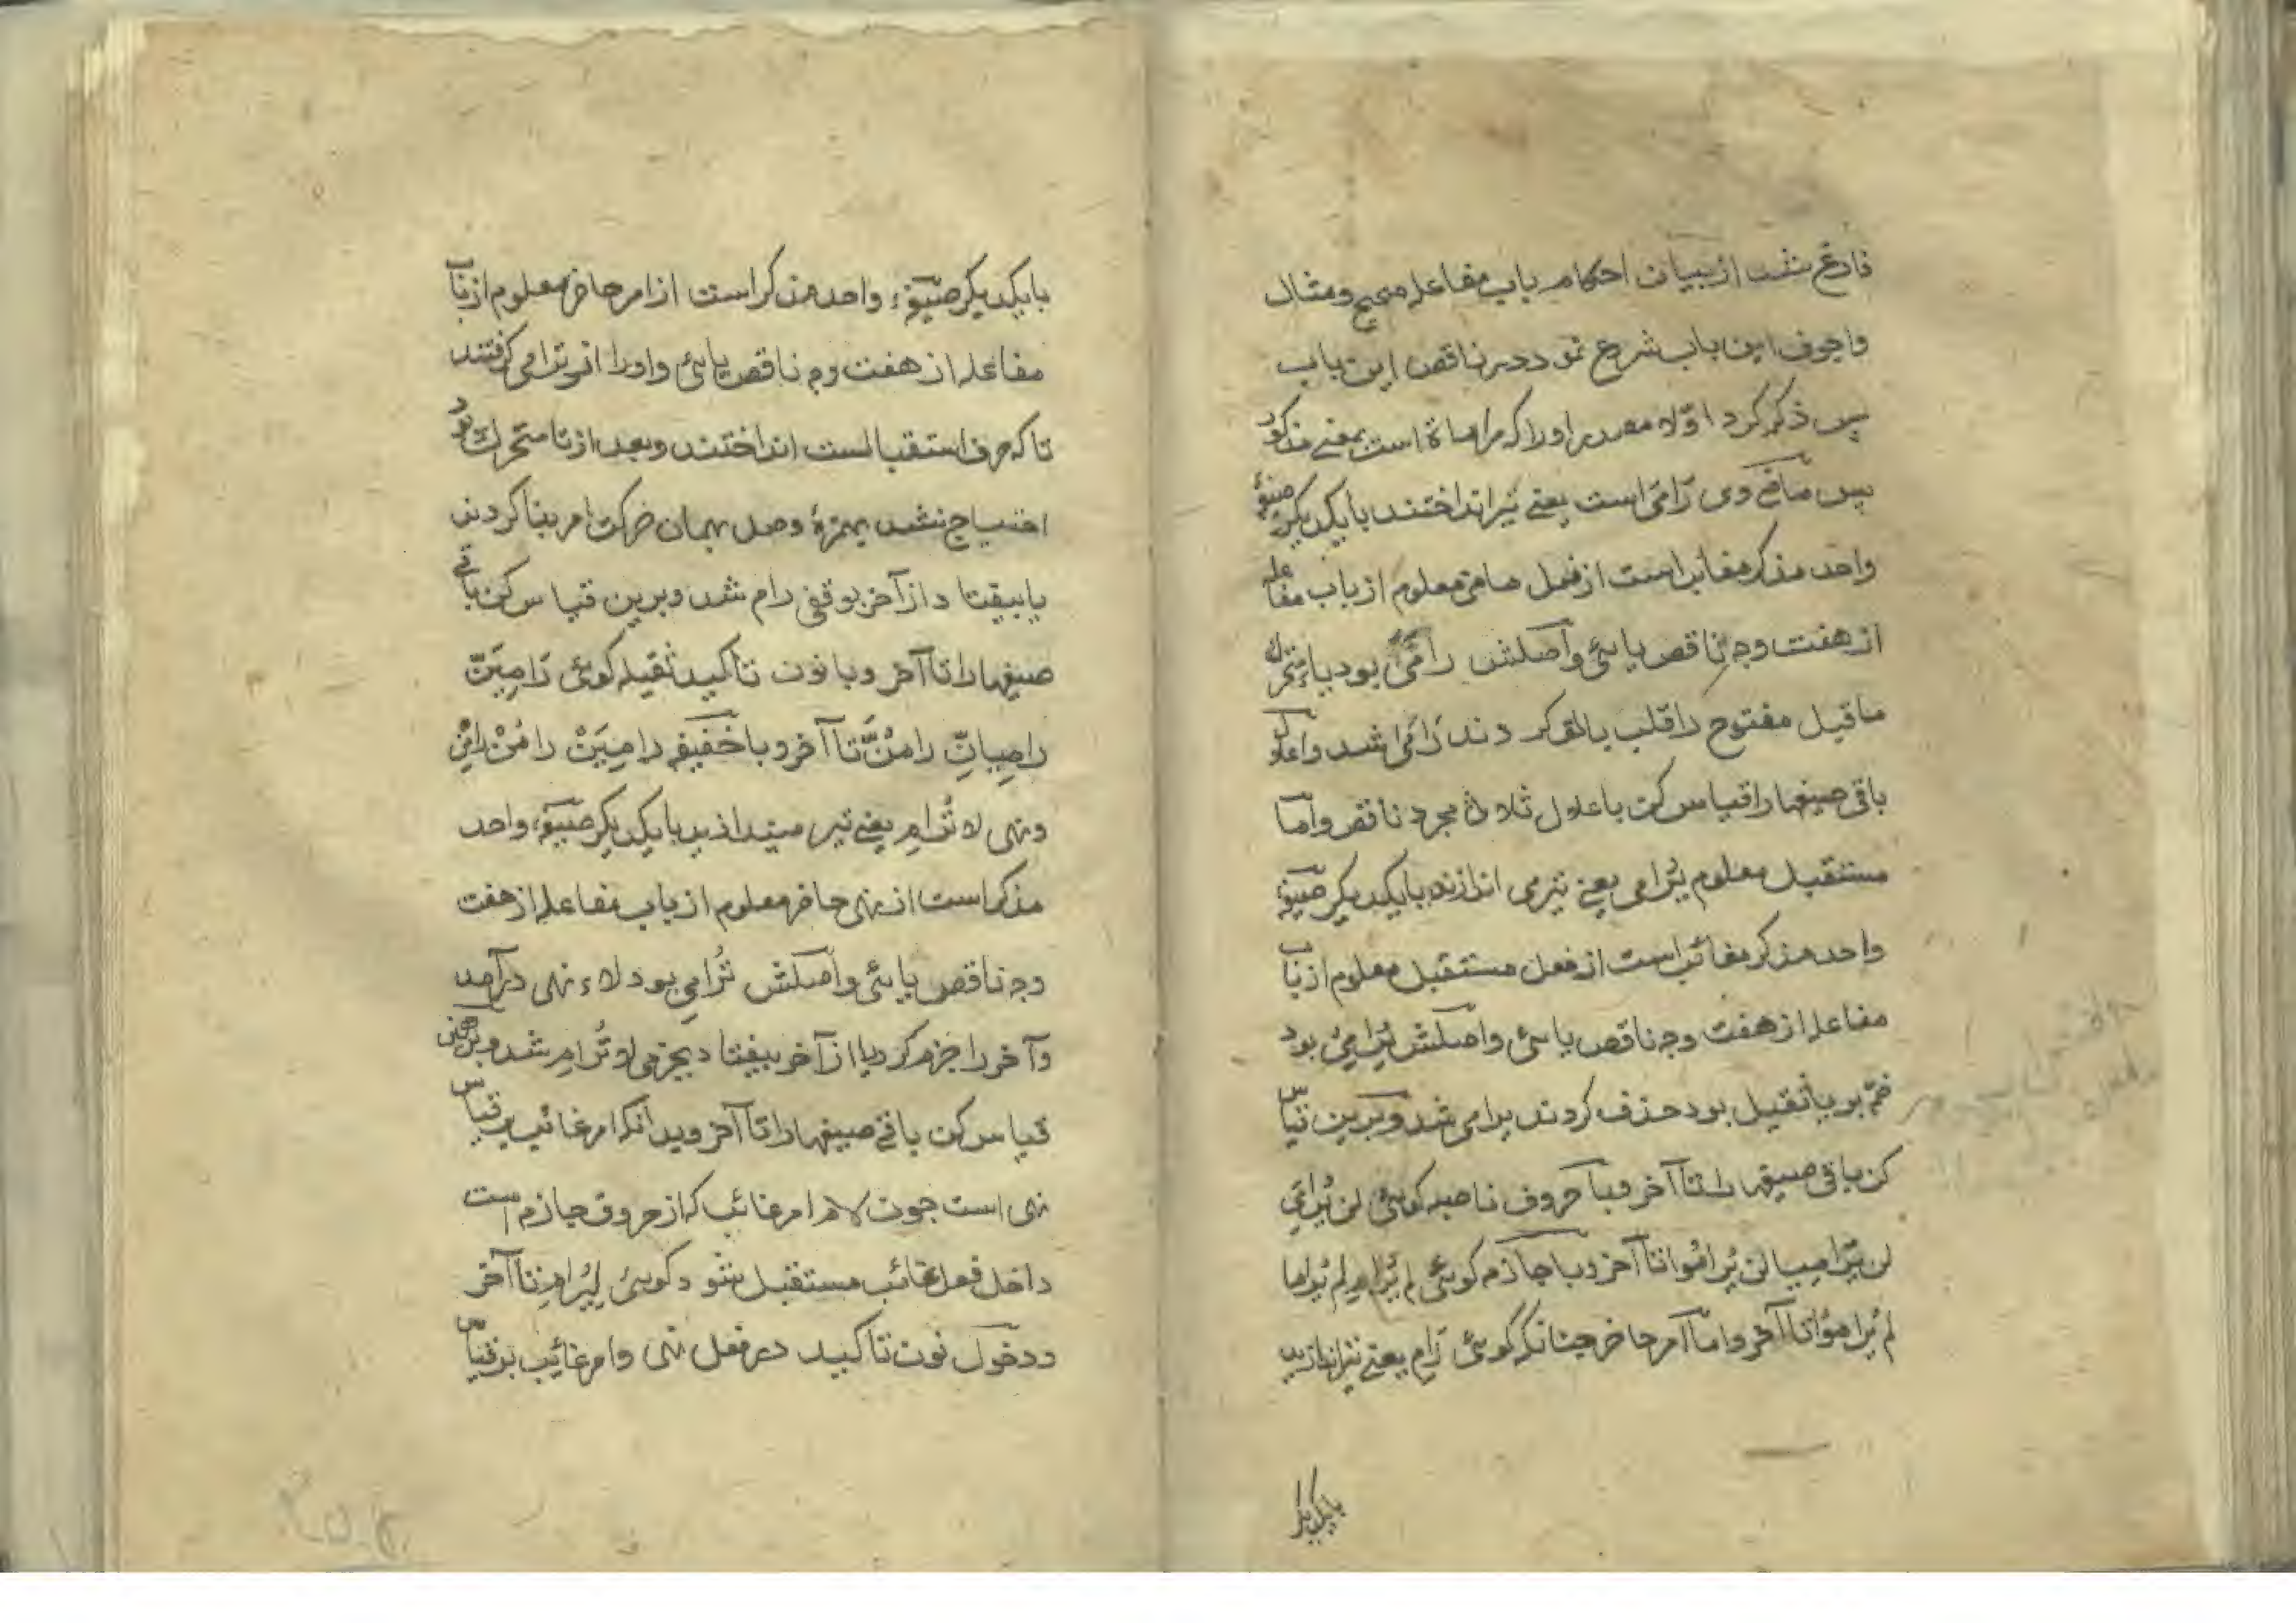 فارغ شد از بیان احکام باب مفاعله صحیح و مثال
واجوف این باب شروع نمود در ناقص این باب
پس ذکر کرد اوّلا مصدر اورا که مراماة است بمعنی مذکور
پس ماضی وی رَامَی است یعنی تیر انداختند بایکدیکر صیغهٔ
واحد مذکر مغایب است از فعل ماضی معلوم از باب مفاعله
از هفت وجه ناقص یایئ و اصلش رامَیَ بود یاء متحرك
ماقبل مفتوح را قلب بالف کردند رَامَی شد و اعلال
باقی صیغها را قیاس کن باعلال ثلاثی مجرد ناقص و امّا
مستقبل معلوم یُرامی یعنی تیر می اندازند بایکدیکر صیغهٔ
واحد مذکر مغائب است از فعل مستقبل معلوم از باب
مفاعله از هفت وجه ناقص یایئ و اصلش یُرامِیُ بود
ضمّه بر یا ثقیل بود حذف کردند یرامی شد و برین قیاس
کن باقی صیغها را تا آخر و با حروف ناصبه کویئ لن یُرامِیَ
لن یُرامیا لن یُرامُوا تا آخر و با جازم کویئ لم یُرام لم یُرامیا
لم یُرامُوا تا آخر و امّا امر حاضر چنانکه گویئ رَامِ یعنی تیر اندازید
بایکدیکر
بایکدیکر صیغهٔ واحد مذکر است از امر حاضر معلوم از باب
مفاعله از هفت وجه ناقص یایئ و اورا از ترامی کرفتند
تا که حرف استقبالست انداختند و بعد از تا متحرك بود
احتیاج نشد بهمزهٔ وصل بهمان حرکت امر بنا کردند
یا بیفتاد از آخر بوقفی رام شد و برین قیاس کن باقی
صیغها را تا آخر و با نون تأکید ثقیله کویئ رَامِیَنّ
رامِیانِّ رامُنَّ تا آخر و با خفیفه رامِیَنْ رامُنْ رامِنْ
و نهی لا تُرامِ یعنی تیر میندازید بایکدیکر صیغهٔ واحد
مذکر است از نهی حاضر معلوم از باب مفاعله از هفت
وجه ناقص یایئ و اصلش تُرامِی بود لاء نهی درآمد
و آخر را جزم کرد یا از آخر بیفتاد بجزمی لا تُرامِ شد و برین
قیاس کن باقی صیغها را تا آخر و بدانکه امر غائب بر قیاس
نهی است چون لام امر غائب که از حروف جازم است
داخل فعل غائب مستقبل شود کویئ لِیُرامِ تا آخر
و دخول نون تاکید در فعل نهی و امر غائیب بر قیاس